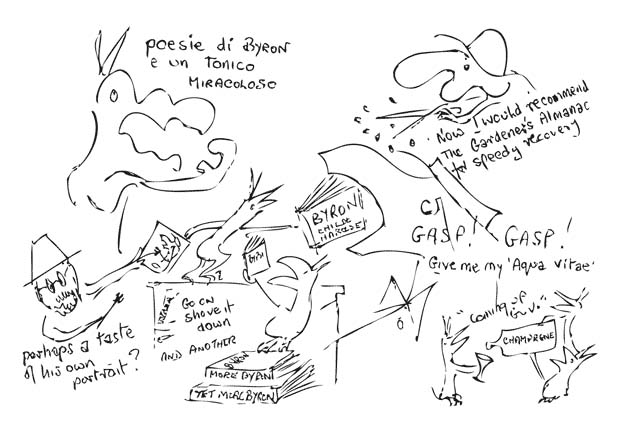 poesie di BYRON
e un Tonico
MIRACOLOSO
Now I would recommend
The Gardener's Almanac
for speedy recovery
BYRON
CHILDE
HAROLDE
GASP!
GASP!
Give me my 'Aqua vitae'
Go on
shove it
down
AND ANOTHER
perhaps a taste
of his own
portrait?
"coming up
CHAMPAGNE
BYRON
MORE BYRON
YET MORE BYRON